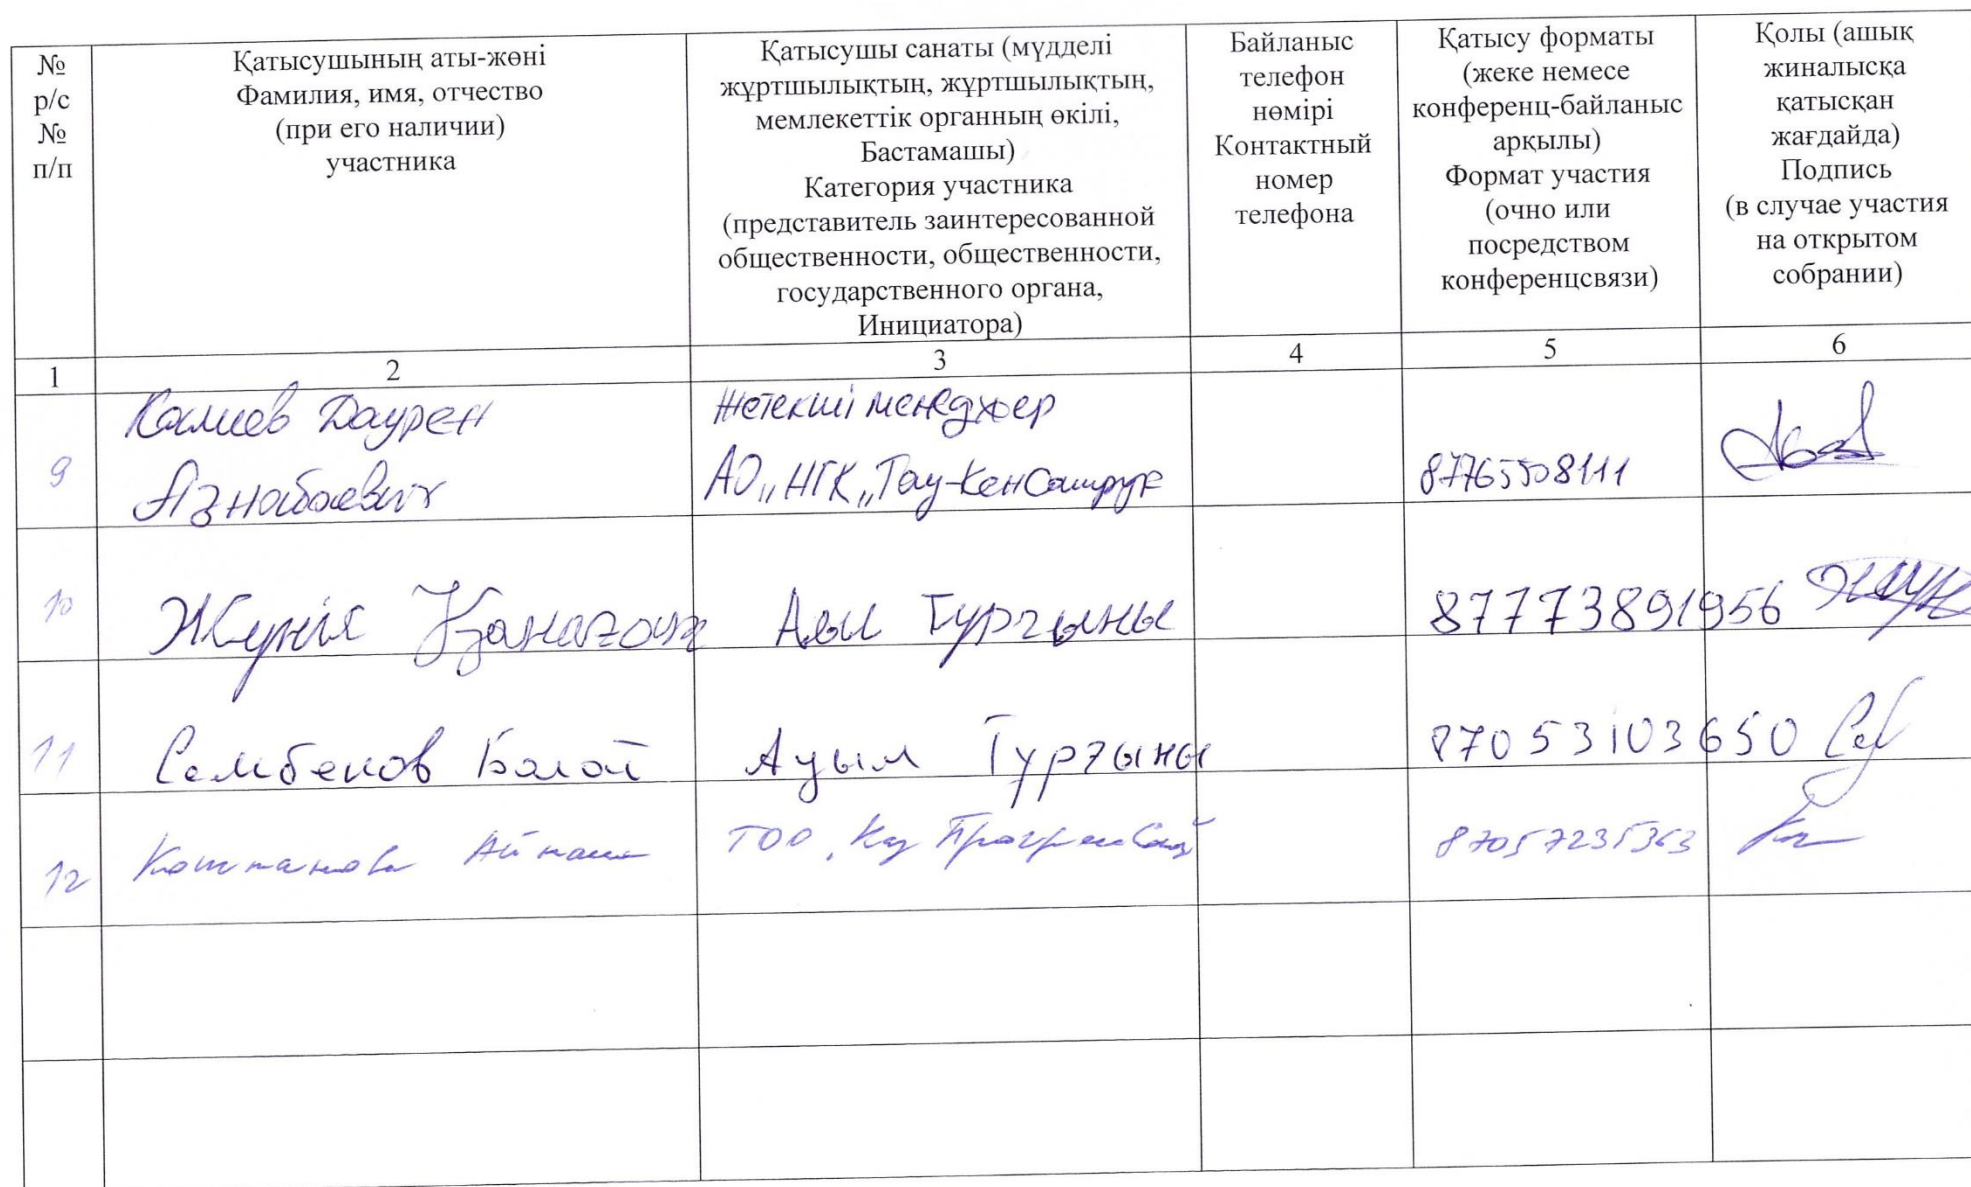 №
р/с
№
п/п
Қатысушының аты-жөні
Фамилия, имя, отчество
(при его наличии)
участника
Қатысушы санаты (мүдделі
жұртшылықтың, жұртшылықтың,
мемлекеттік органның өкілі,
Бастамашы)
Категория участника
(представитель заинтересованной
общественности, общественности,
государственного органа,
Инициатора)
Байланыс
телефон
нөмірі
Контактный
номер
телефона
Қатысу форматы
(жеке немесе
конференц-байланыс
арқылы)
Формат участия
(очно или
посредством
конференцсвязи)
Қолы (ашық
жиналысқа
қатысқан
жағдайда)
Подпись
(в случае участия
на открытом
собрании)
1
2
3
4
5
6
9
Калиев Даурен
Азнабаевич
Жетекші менеджер
АО „НГК „Тау-Кен Самрук
87765508111
10
Жүніс Қанағат
Ауыл Тұрғыны
87773891956
11
Сембеков Болат
Ауыл Тұрғыны
87053103650
12
ТОО
87057235363